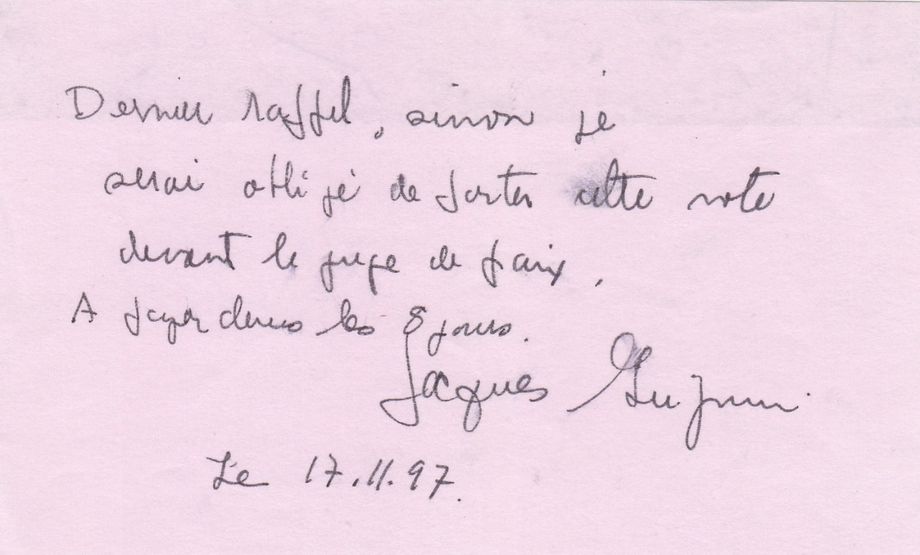 Dernier rappel, sinon je
serai obligé de porter cette note
devant le juge de paix.
A payer dans les 8 jours.
Jacques
Le 17.11.97.